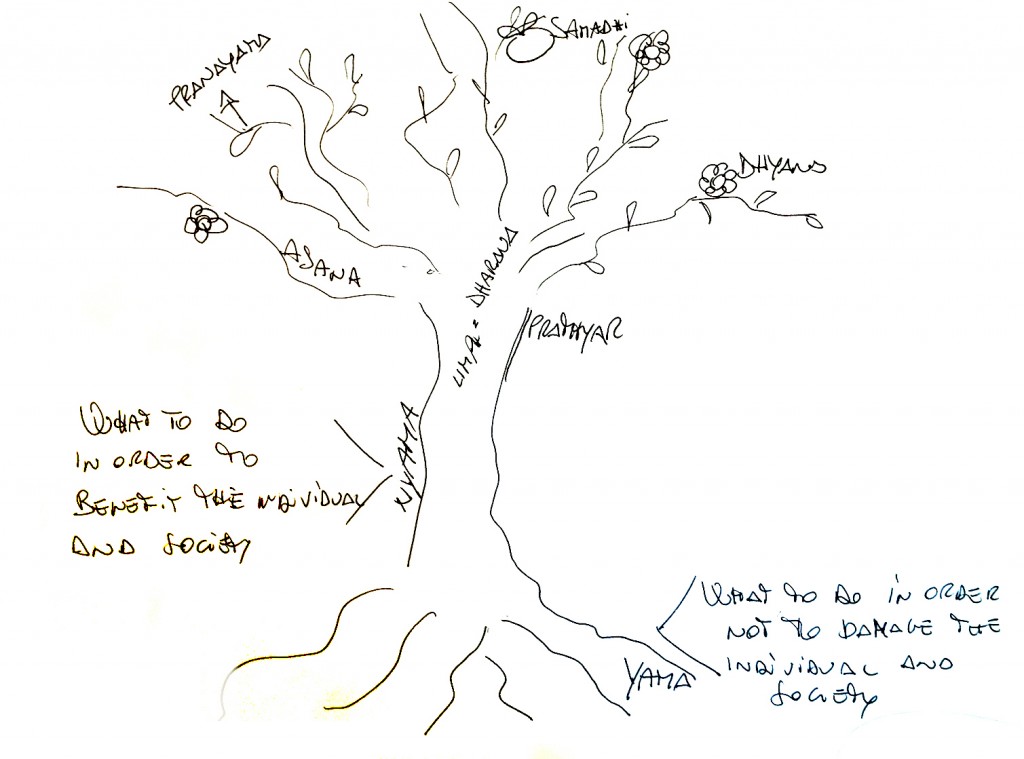 SAMADHI
PRANAYAMA
DHYANA
ASANA
= DHARANA
PRATHYAR
NYAMA
WHAT TO DO
IN ORDER TO
BENEFIT THE INDIVIDUAL
AND SOCIETY
WHAT TO DO IN ORDER
NOT TO DAMAGE THE
INDIVIDUAL AND
SOCIETY
YAMA